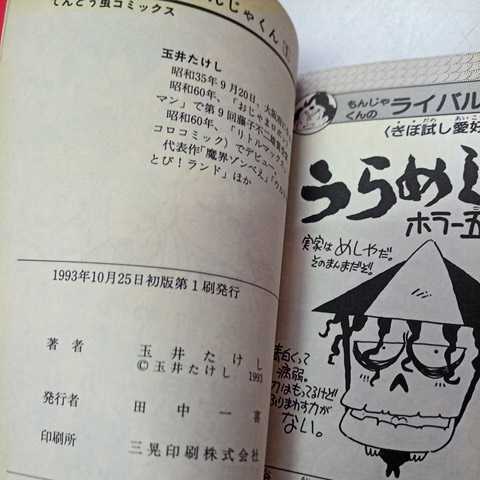 てんとう虫コミックス
んじゃくん①
玉井たけし
昭和35年9月20日、大阪
昭和60年、「おじゃま
マン」で第9回藤子不二雄賞
昭和60年、「リトルマック
コロコミック)でデビュー
代表作「魔界ゾンべえ」
とび!ランド」ほか
1993年10月25日初版第1刷発行
著者 玉井たけし
©玉井たけし 1993
発行者 田中一喜
印刷所 三晃印刷株式会社
もんじゃ
くんの
ライバル
〈きぼ試し愛好
うらめし
ホラー五
実家はめしやだ。
そのまんまだぞ!
青白くって
病弱。
力はもってるけど!!
ふりまわす力が
ない。